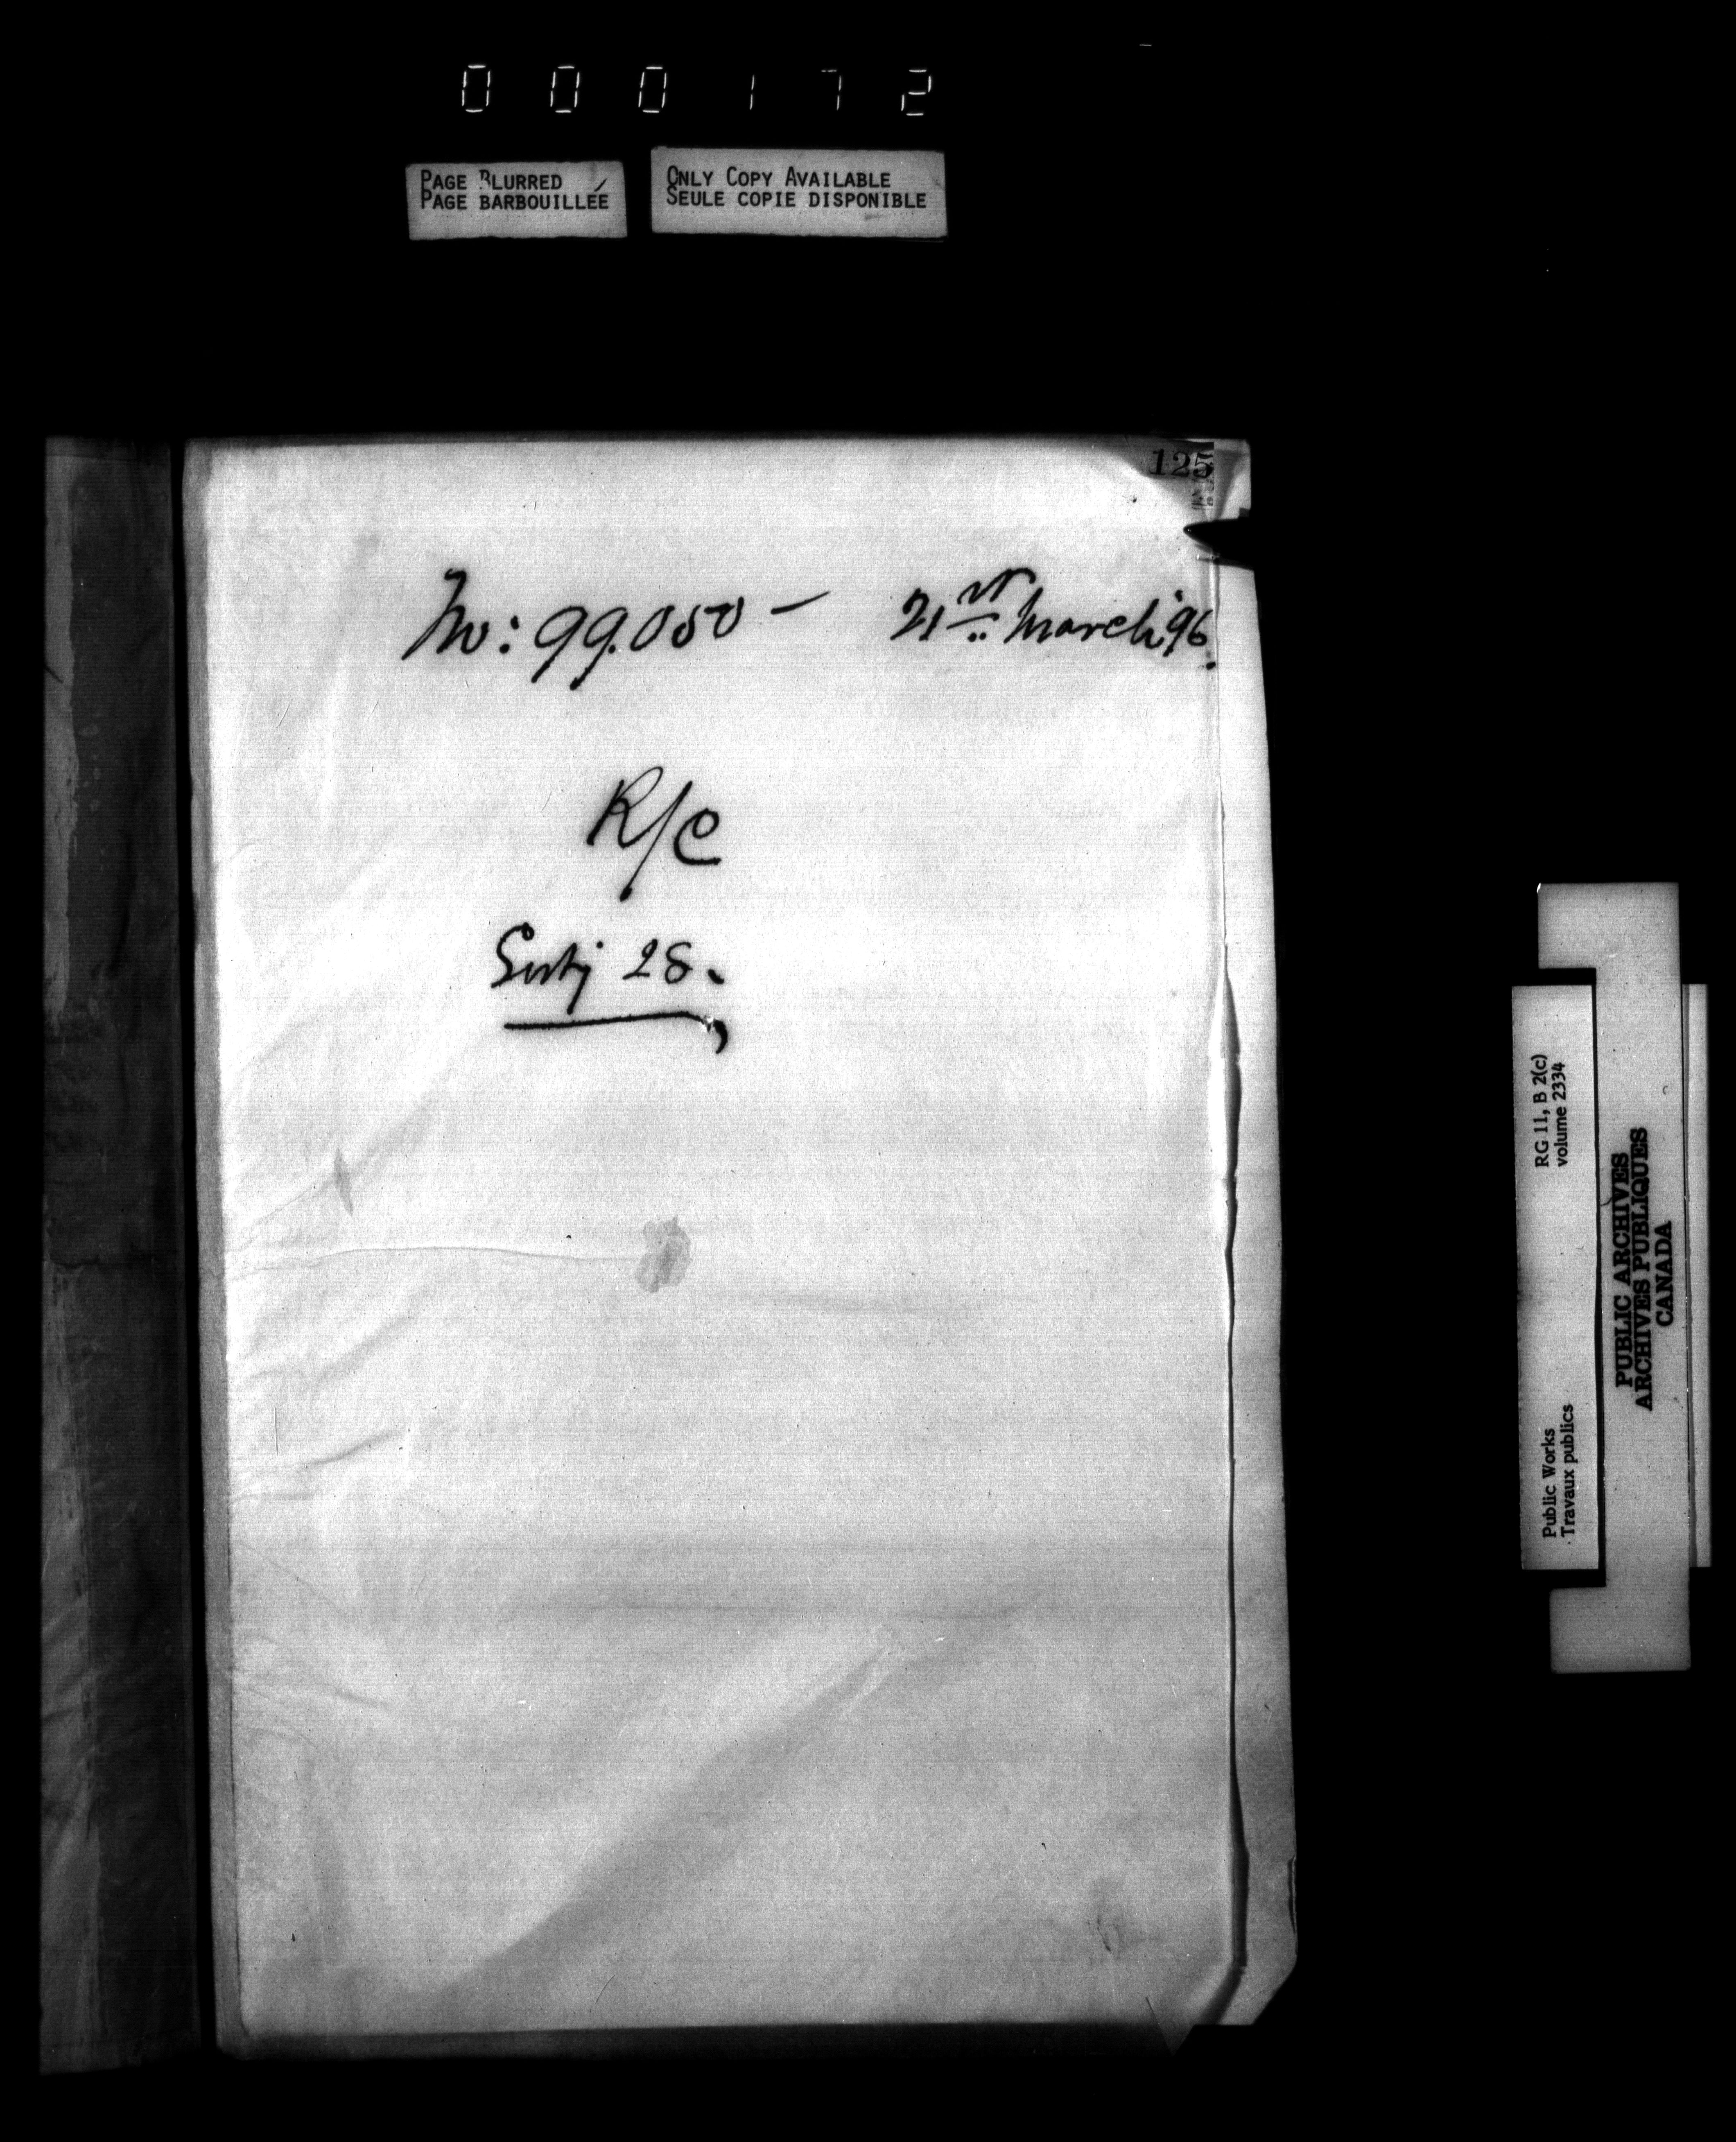 000172
PAGE BLURRED
PAGE BARBOUILLÉE
ONLY COPY AVAILABLE
SEULE COPIE DISPONIBLE
125
No: 99.050 - 21st March '96.
R/C
Subj 28.
RG 11, B 2(c)
volume 2334
Public Works
Travaux publics
PUBLIC ARCHIVES
ARCHIVES PUBLIQUES
CANADA